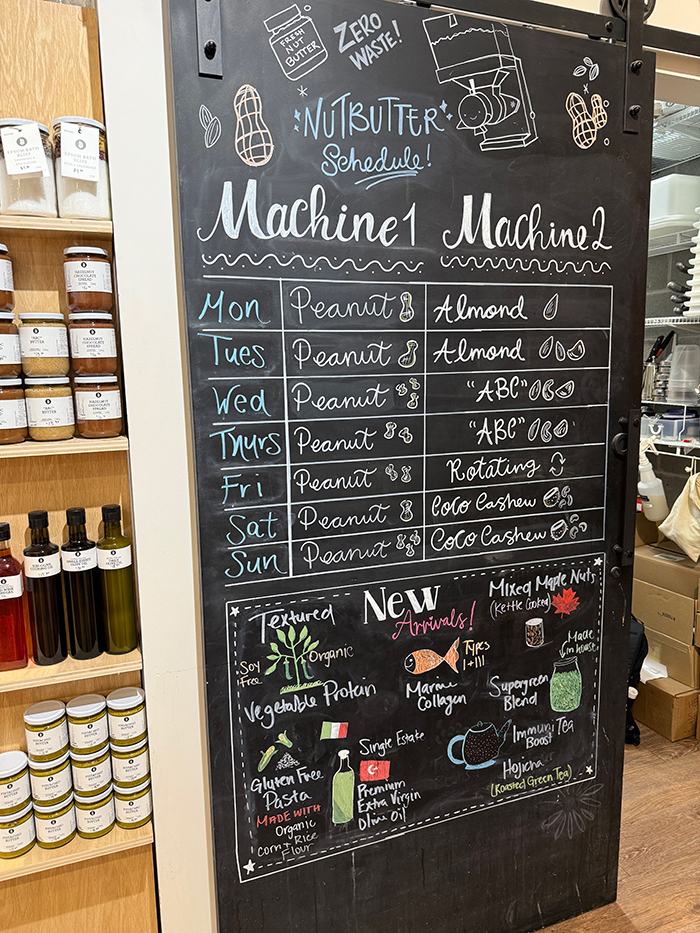 FRESH
NUT
BUTTER
ZERO
WASTE!
NUTBUTTER
Schedule!
Machine 1 Machine 2
Mon Peanut Almond
Tues Peanut Almond
Wed Peanut "ABC"
Thurs Peanut "ABC"
Fri Peanut Rotating
Sat Peanut Coco Cashew
Sun Peanut Coco Cashew
New
Arrivals!
Textured
Soy
Free
Organic
Vegetable Protein
Types
I + III
Marine
Collagen
Mixed Maple Nuts
(Kettle Cooked)
Made
in house
Supergreen
Blend
Gluten Free
Pasta
MADE WITH
Organic
Corn + Rice
Flour
Single Estate
Premium
Extra Virgin
Olive Oil
Immuni Tea
Boost
Hojicha
(Roasted Green Tea)
EPSOM BATH
BLISS
EPSOM BATH
BLISS
HAZELNUT
CHOCOLATE
SPREAD
"ABC"
BUTTER
HAZELNUT
CHOCOLATE
SPREAD
"ABC"
BUTTER
HAZELNUT
CHOCOLATE
SPREAD
PISTACHIO
BUTTER
PISTACHIO
BUTTER
PISTACHIO
BUTTER